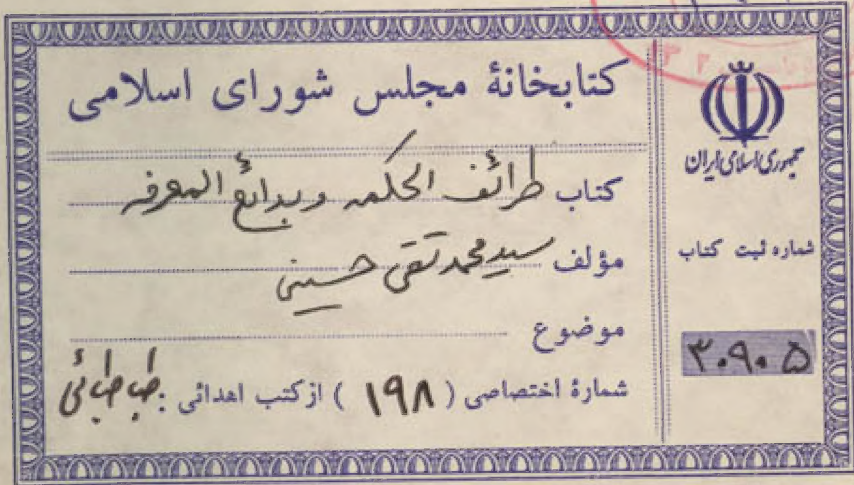 کتابخانهٔ مجلس شورای اسلامی
کتاب طرائف الحکمه وبدائع المعرفه
مؤلف سید محمد تقی حسینی
موضوع
شمارهٔ اختصاصی ( ۱۹۸ ) از کتب اهدائی : طباطبائی
جمهوری اسلامی ایران
شماره ثبت کتاب
۳۰۹۰۵